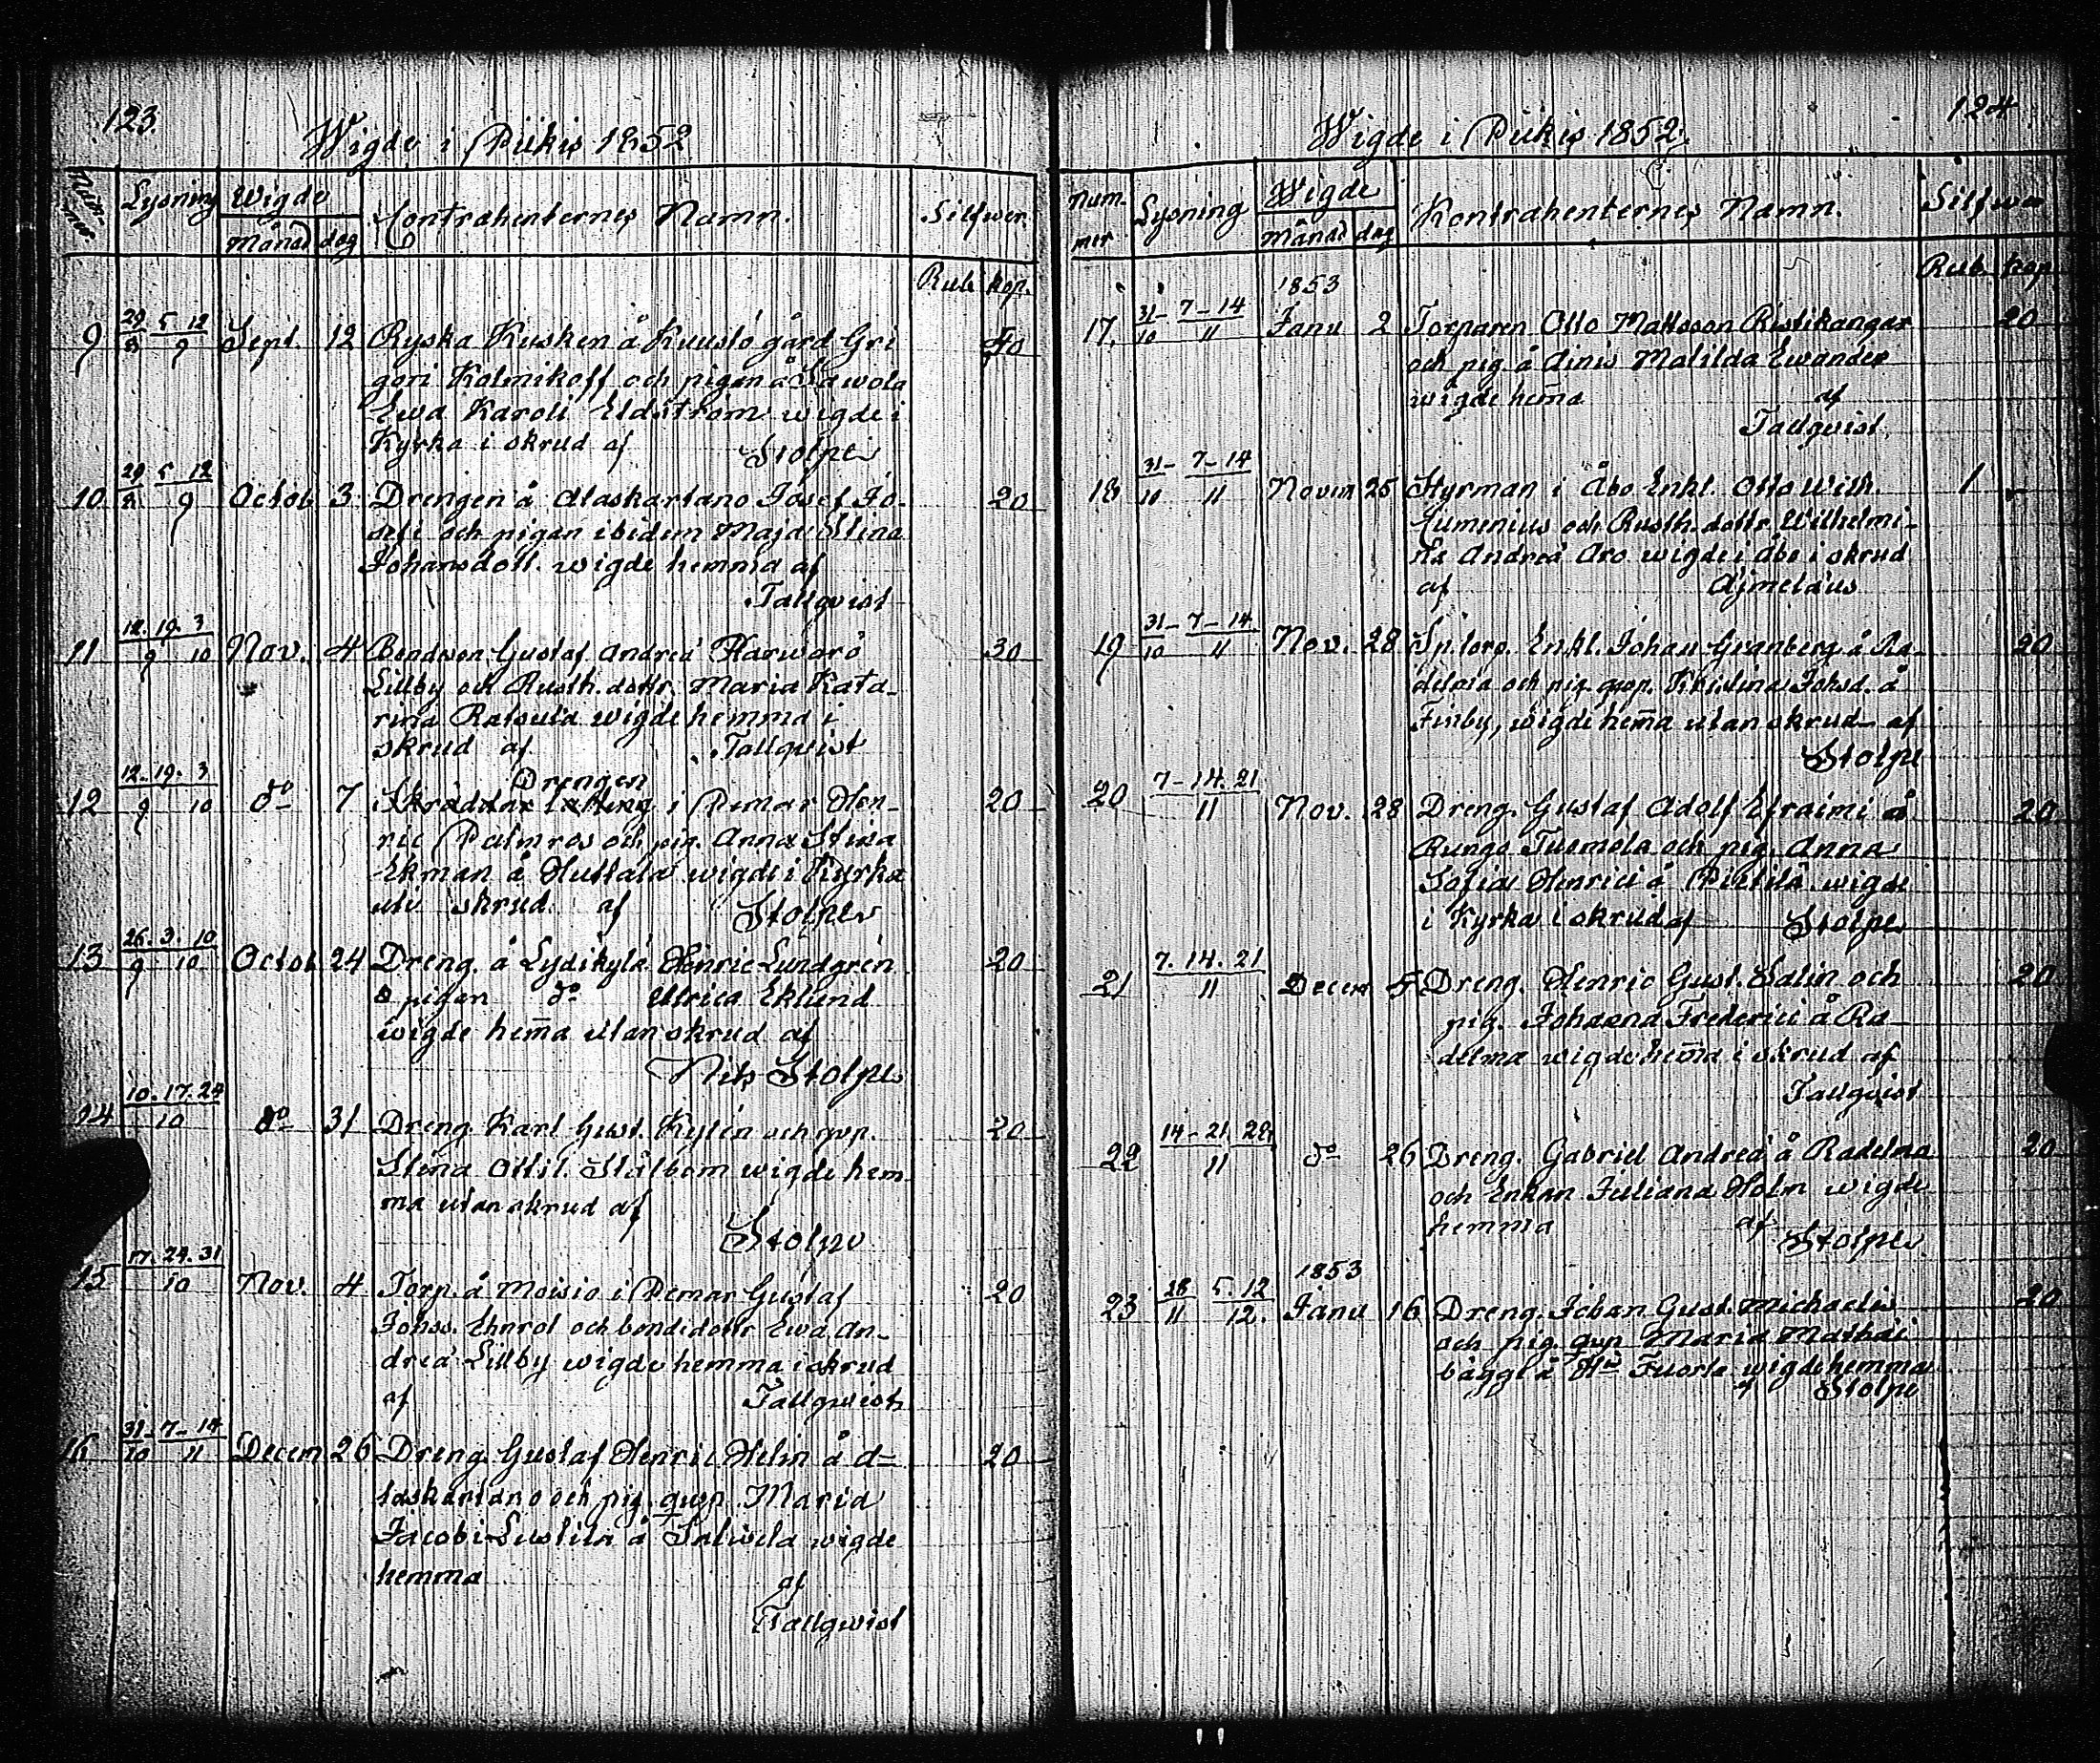 123.
Wigde i Pikis 1852
Num-
mer
Lysning
Wigde
Månad
dag
Contrahenternes Namn.
Silfwer.
Rub.
kop.
29/8 5 12/9
9 Sept. 12 Ryska Kusken å Kuustö gård Gri 40
gori Kolmikoff och pigan å Sawola
Ewa Karoli Eldström wigde i
Kyrka i skrud af Stolpe
29/8 5 12/9
10 Octob 3 Drengen å Alaskartano Josef Jo- 20
sefi och pigan ibidem Maja Stina
Johansdott. wigde hemma af
Tallqvist
12. 19. 3
9 10
11 Nov. 4 Bondson Gustaf Andreä Harwarö 30
Lillby och Rusth. dottr. Maria Kata-
rina Ratsula wigde hemma i
skrud af Tallqvist
Drengen
12. 19. 3
9 10
12 do 7 Skräddar i Pemar Hen- 20
ric Palmros och pig. Anna Stina
Ekman å Huttala wigde i Kyrka
uti skrud af Stolpe
26. 3. 10
9 10
13 Octob 24 Dreng. å Lydikylä Henric Lundgrén 20
o pigan do Ulrica Eklund
wigde hem̄a utan skrud af
Nils Stolpe
10. 17. 24
10
14 do 31 Dreng Karl Gust. Kylén och qvp. 20
Stina Ottil. Stålbom wigde hem-
ma utan skrud af
Stolpe
17. 24. 31
10
15 Nov. 4 Torp. å Moisio i Pemar Gustaf 20
Johss. Ehnrot och bondedottr Ewa An-
dreä Lillby wigde hemma i skrud
af Tallqwist
31- 7- 14
10 11
16 Decem 26 Dreng. Gustaf Henric Helin å A- 20
laskartano och pig. qwp. Maria
Jacobi Eustila å Salwela wigde
hemma af
Tallqwist
124
Wigde i Pikis 1852.
Num-
mer
Lysning
Wigde
Månad
dag
Kontrahenternes Namn.
Silfwer
Rub.
kop.
1853
31- 7- 14
10 11
17. Janu 2 Torparen Otto Mattsson Ristikangar 20
och pig å Ainis Matilda Ewander
wigde hem̄a af
Tallqvist
31- 7- 14
10 11
18 Novem 25 Styrman i Åbo Enkl. Otto Wilh. 1
Cumenius och Rusth. dottr Wilhelmi-
na Andreä Aro wigde i Åbo i skrud
af Ajmelaus
31- 7- 14
10 11
19 Nov. 28 Sp. torp. Enkl. Johan Granberg å Ra- 20
delma och pig. qvp. Kristina Johsd. å
Finby, wigde hem̄a utan skrud af
Stolpe
7- 14. 21
11
20 Nov. 28 Dreng. Gustaf Adolf Efraimi å 20
Rungo Tuomola och pig. Anna
Sofia Henrici å Pietilä wigde
i Kyrka i skrud af Stolpe
7. 14. 21
11
21 Decem 5 Dreng. Henric Gust. Salin och 20
pig. Johanna Frederici å Ra-
delma wigde hem̄a i skrud af
Tallqvist
14- 21 28
11
22 do 26 Dreng. Gabriel Andreä å Radelma 20
och Enkan Juliana Holm wigde
hemma af Stolpe
1853
28 5. 12
11 12.
23 Janu 16 Dreng. Johan Gust. Michaelis 20
och pig. qvp Maria Mathäi
bägge å Tuorla wigde hemma
af Stolpe